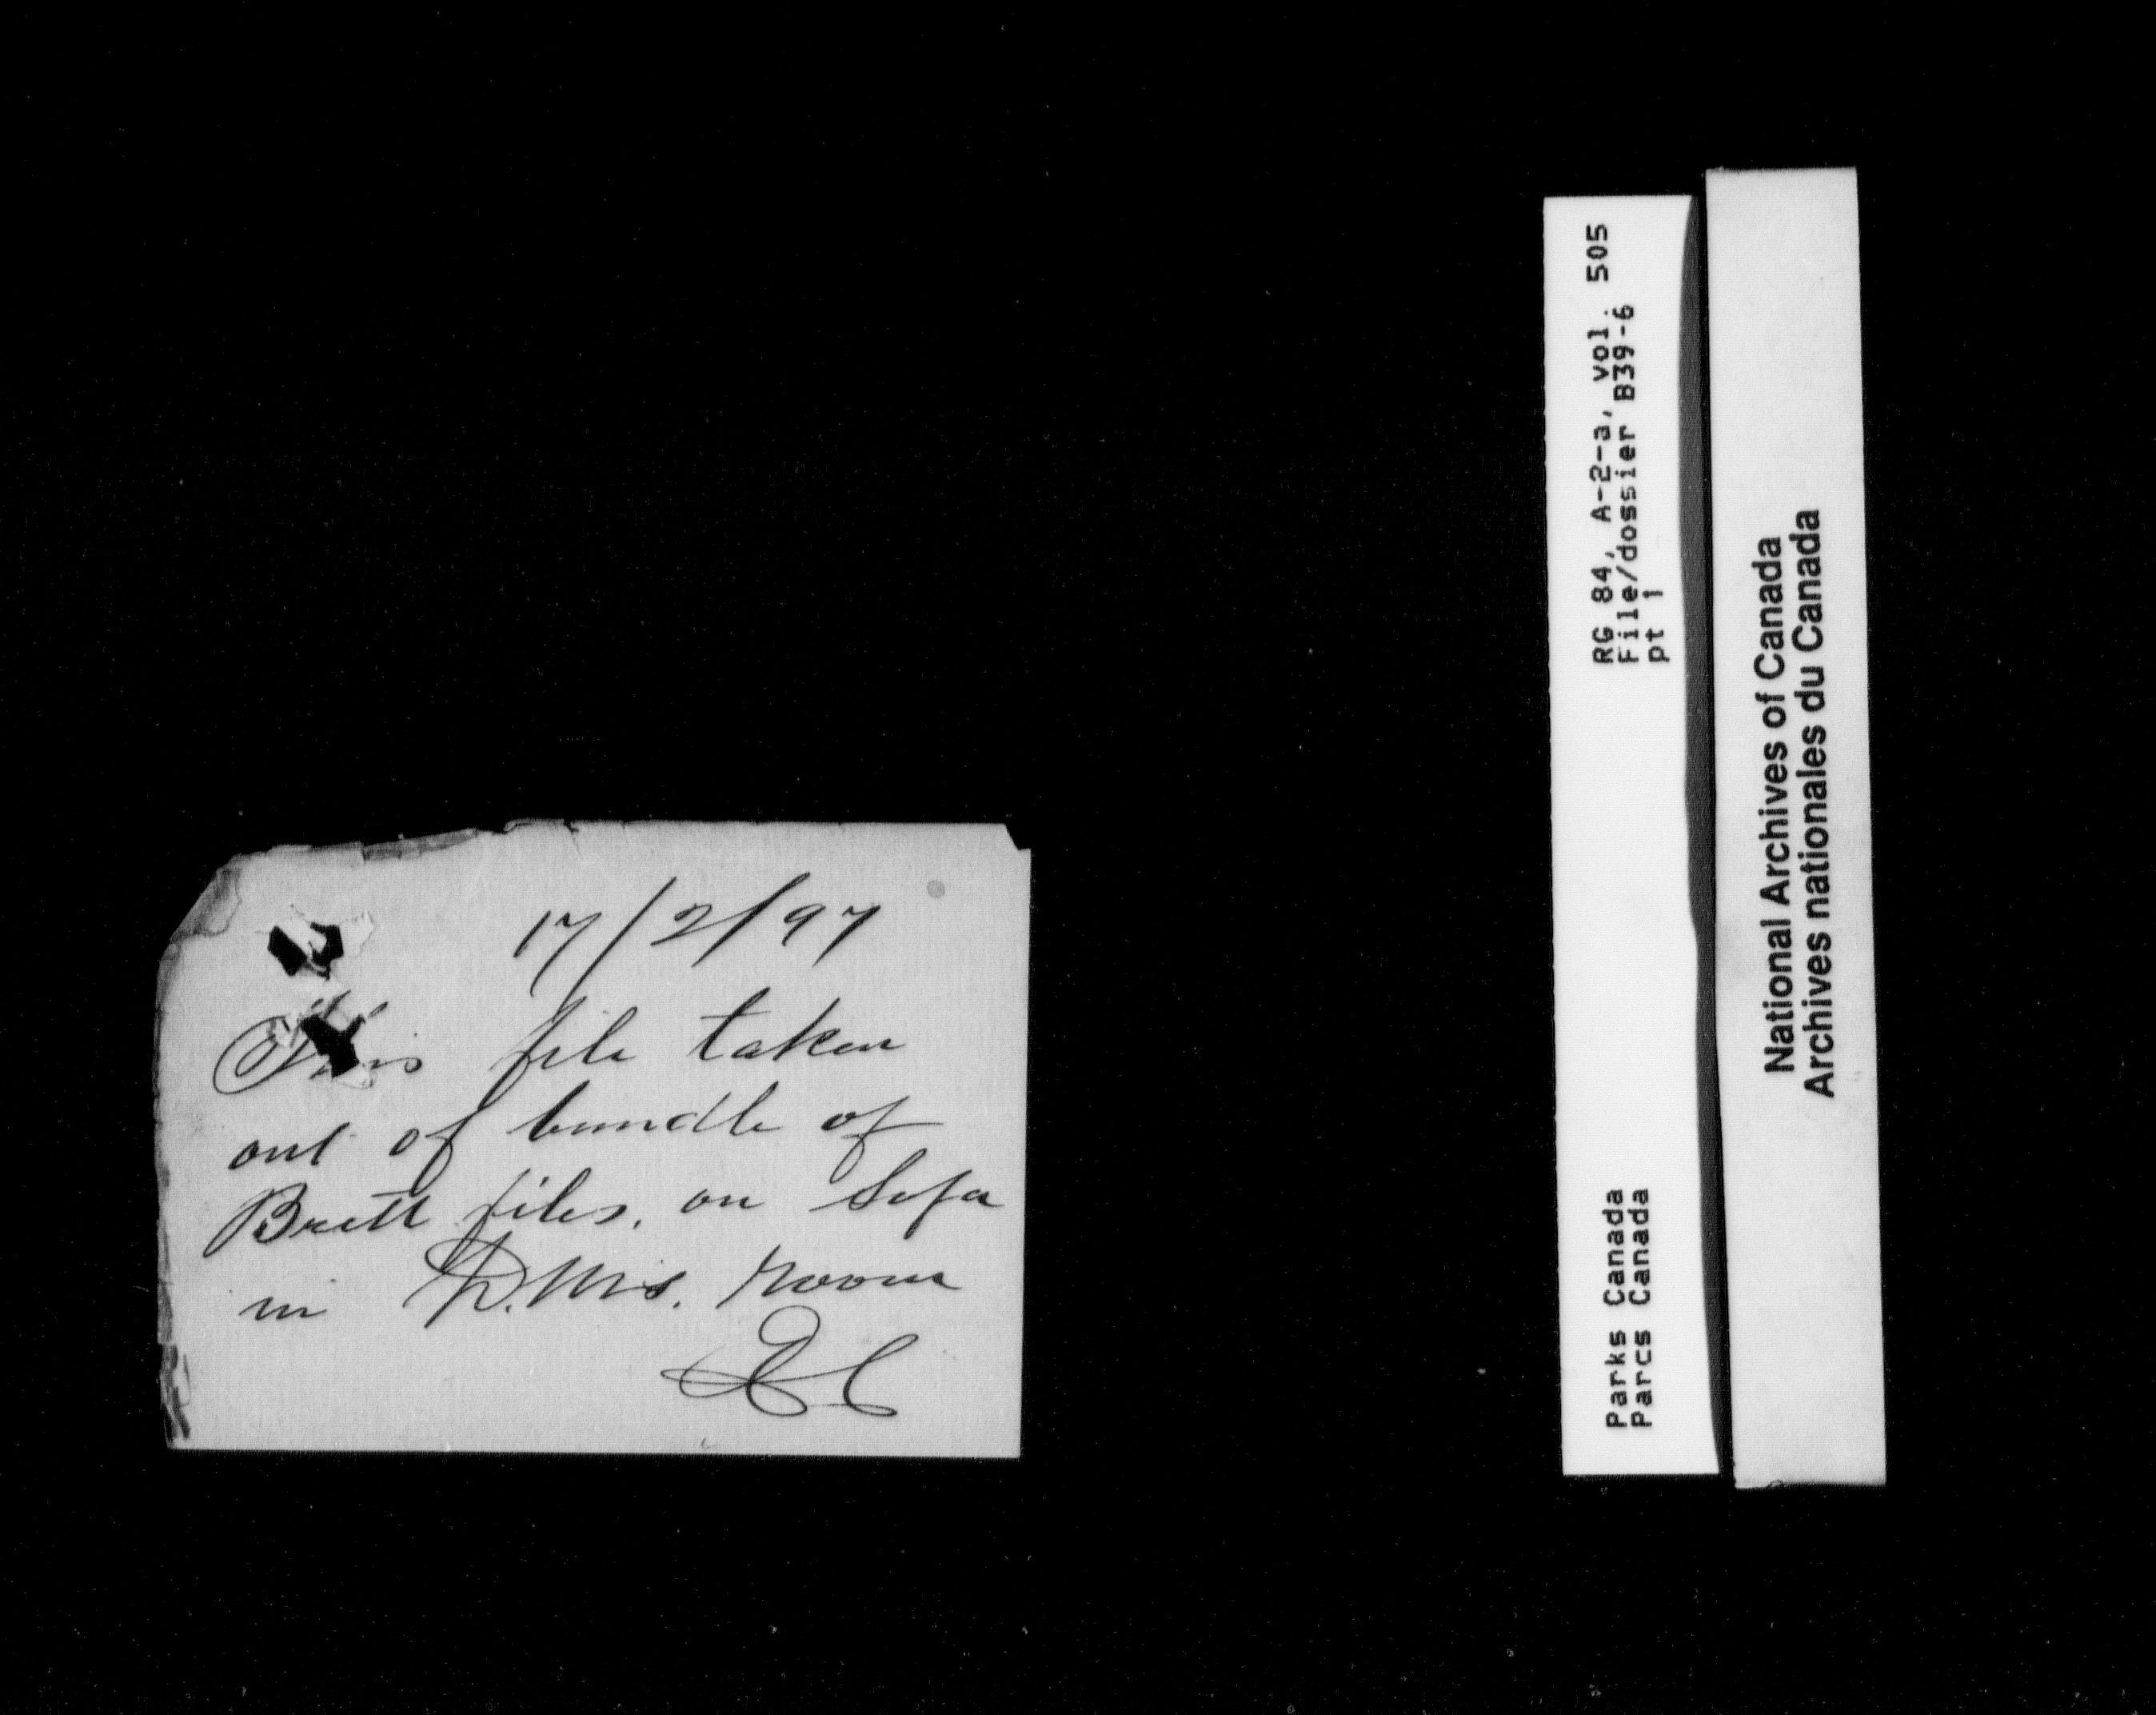 17/2/97
This file taken
out of bundle of
Brett files, on Sofa
in D.M's. room
RG 84, A-2-a, vol. 505
File/dossier B39-6
pt 1
Parks Canada
Parcs Canada
National Archives of Canada
Archives nationales du Canada